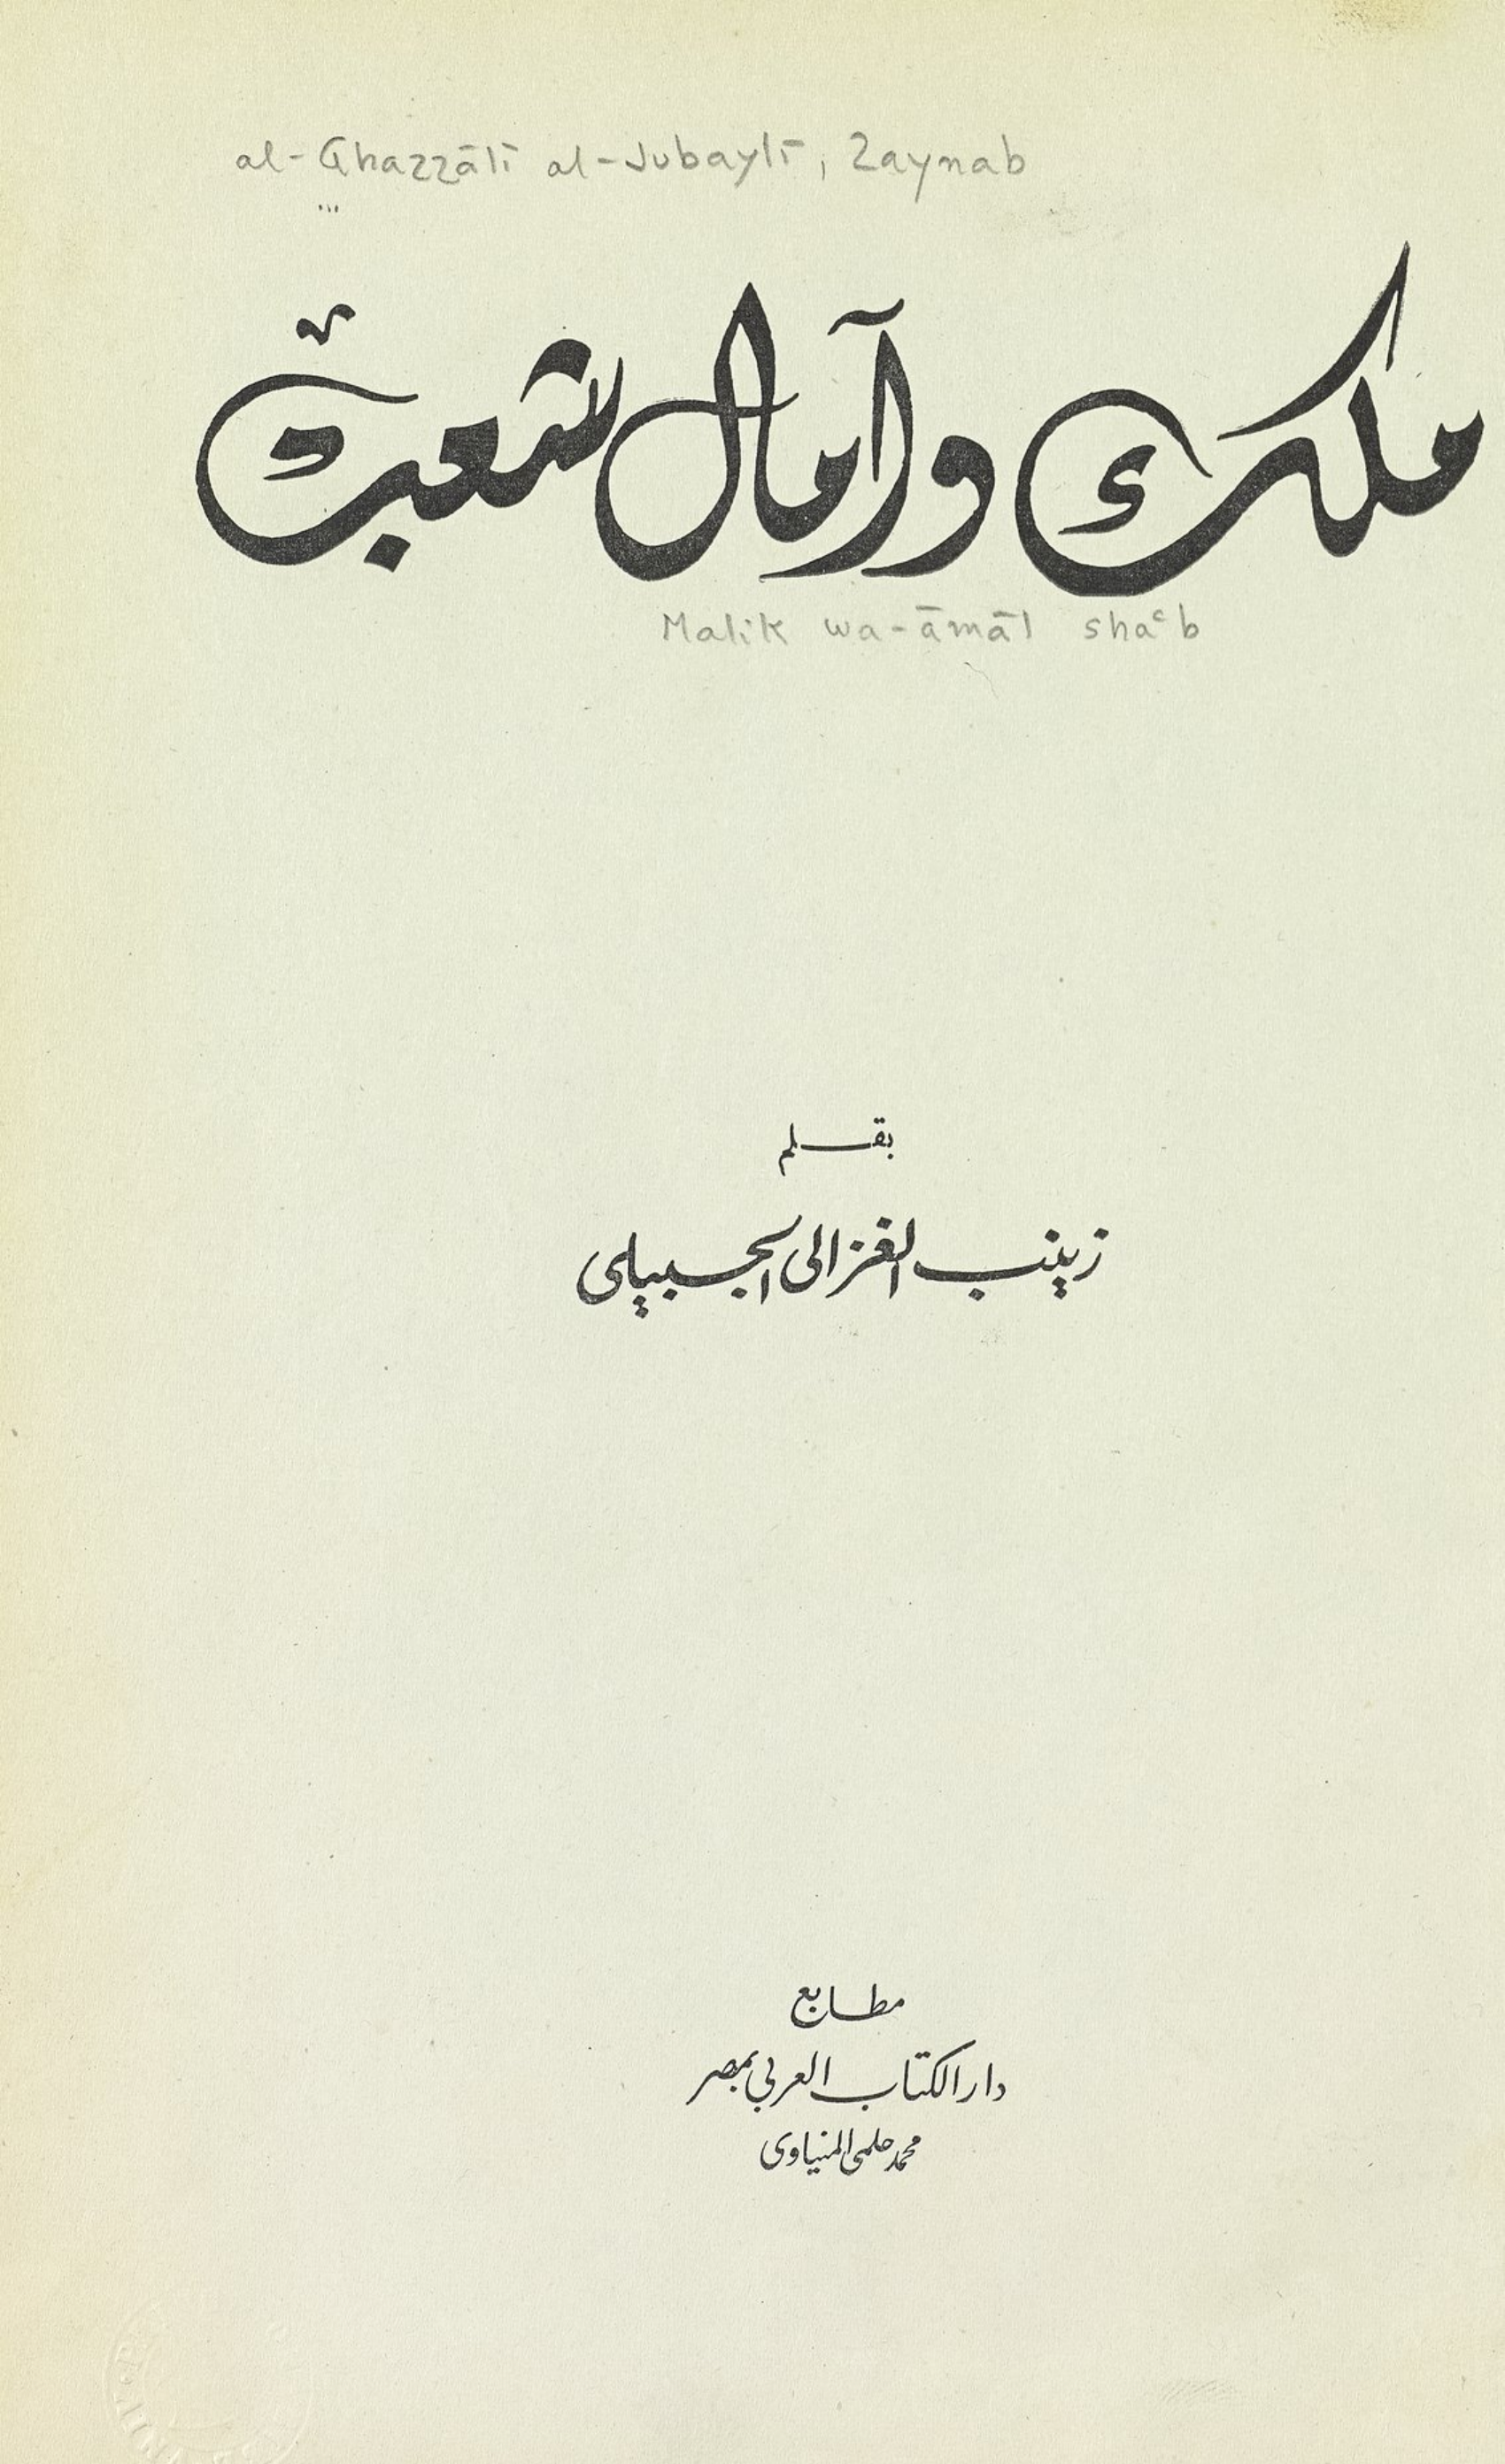 al-Ghazzālī al-Jubaylī, Zaynab
ملك وآمال شعب
Malik wa-āmāl shaʿb
بقلم
زينب الغزالى الجبيلى
مطابع
دار الكتاب العربي بمصر
محمد حلمى المنياوى